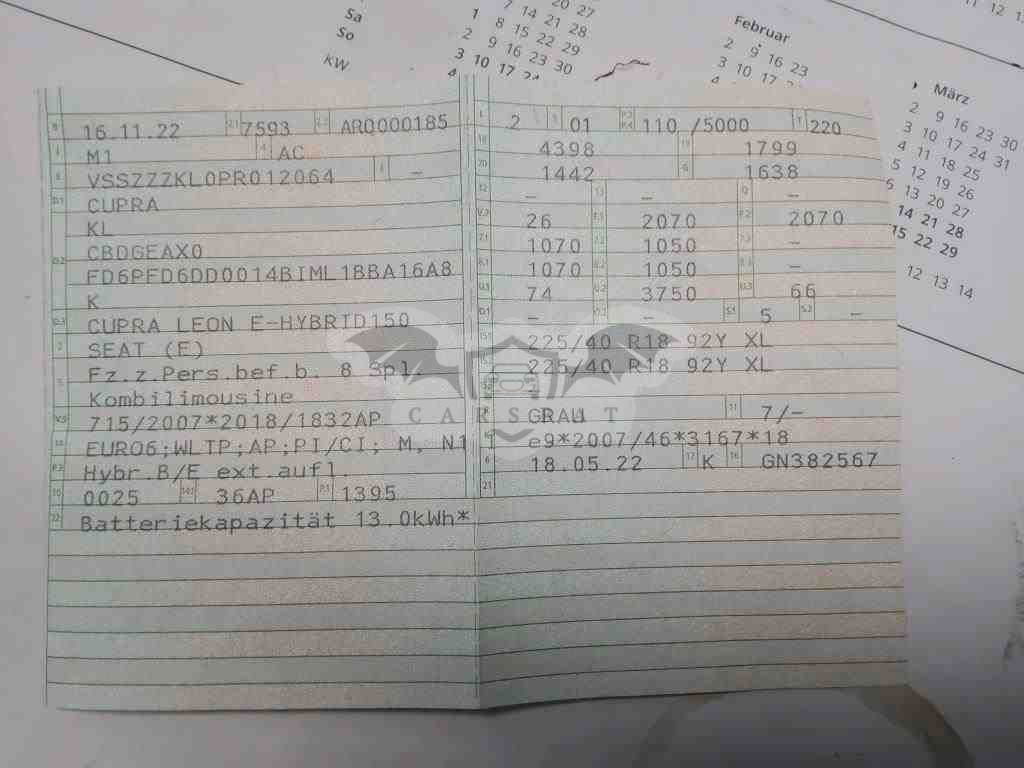 Sa
So
KW
20 27
7 14 21 28
1 8 15 22 29
2 9 16 23 30
3 10 17 24
4
Februar
2 9 16 23
3 10 17
4
11 12
März
2 9 16 23 30
3 10 17 24 31
4 11 18 25
5 12 19 26
6 13 20 27
14 21 28
15 22 29
12 13 14
B 16.11.22 2.1 7593 2.2 ARQ000185
J M1 4 AC
E VSSZZZKL0PR012064 3 –
D.1 CUPRA
KL
D.2 CBDGEAX0
FD6PFD6DD0014BIML1BBA16A8
K
D.3 CUPRA LEON E-HYBRID150
2 SEAT (E)
5 Fz.z.Pers.bef.b. 8 Spl.
Kombilimousine
V.9 715/2007*2018/1832AP
14 EURO6;WLTP;AP;PI/CI; M, N1
P.3 Hybr.B/E ext.aufl.
10 0025 14.1 36AP P.1 1395
22 Batteriekapazität 13.0kWh*
L 2 9 01 P.2 P.4 110 /5000 T 220
18 4398 19 1799
20 1442 G 1638
12 – 13 – Q –
V.7 26 F.1 2070 F.2 2070
7.1 1070 7.2 1050 7.3 –
8.1 1070 8.2 1050 8.3 –
U.1 74 U.2 3750 U.3 66
O.1 – O.2 – S.1 5 S.2 –
15.1 225/40 R18 92Y XL
225/40 R18 92Y XL
GRAU 11 7/–
K e9*2007/46*3167*18
6 18.05.22 17 K 16 GN382567
21
CARSCAT